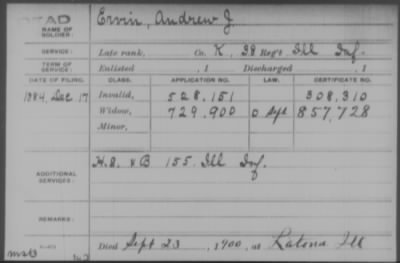 DEAD
NAME OF SOLDIER:
Ervin, Andrew J.
SERVICE:
Late rank, Co. K, 38 Reg't Ill Inf.
TERM OF SERVICE:
Enlisted , 1 Discharged , 1
DATE OF FILING. CLASS. APPLICATION NO. LAW. CERTIFICATE NO.
1884, Dec 17 Invalid, 528,151 308,310
Widow, 729,900 O Sept 857,728
Minor,
ADDITIONAL SERVICES:
H. & B 155 Ill Inf.
REMARKS:
Died Sept 23, 1900, at Latona Ill